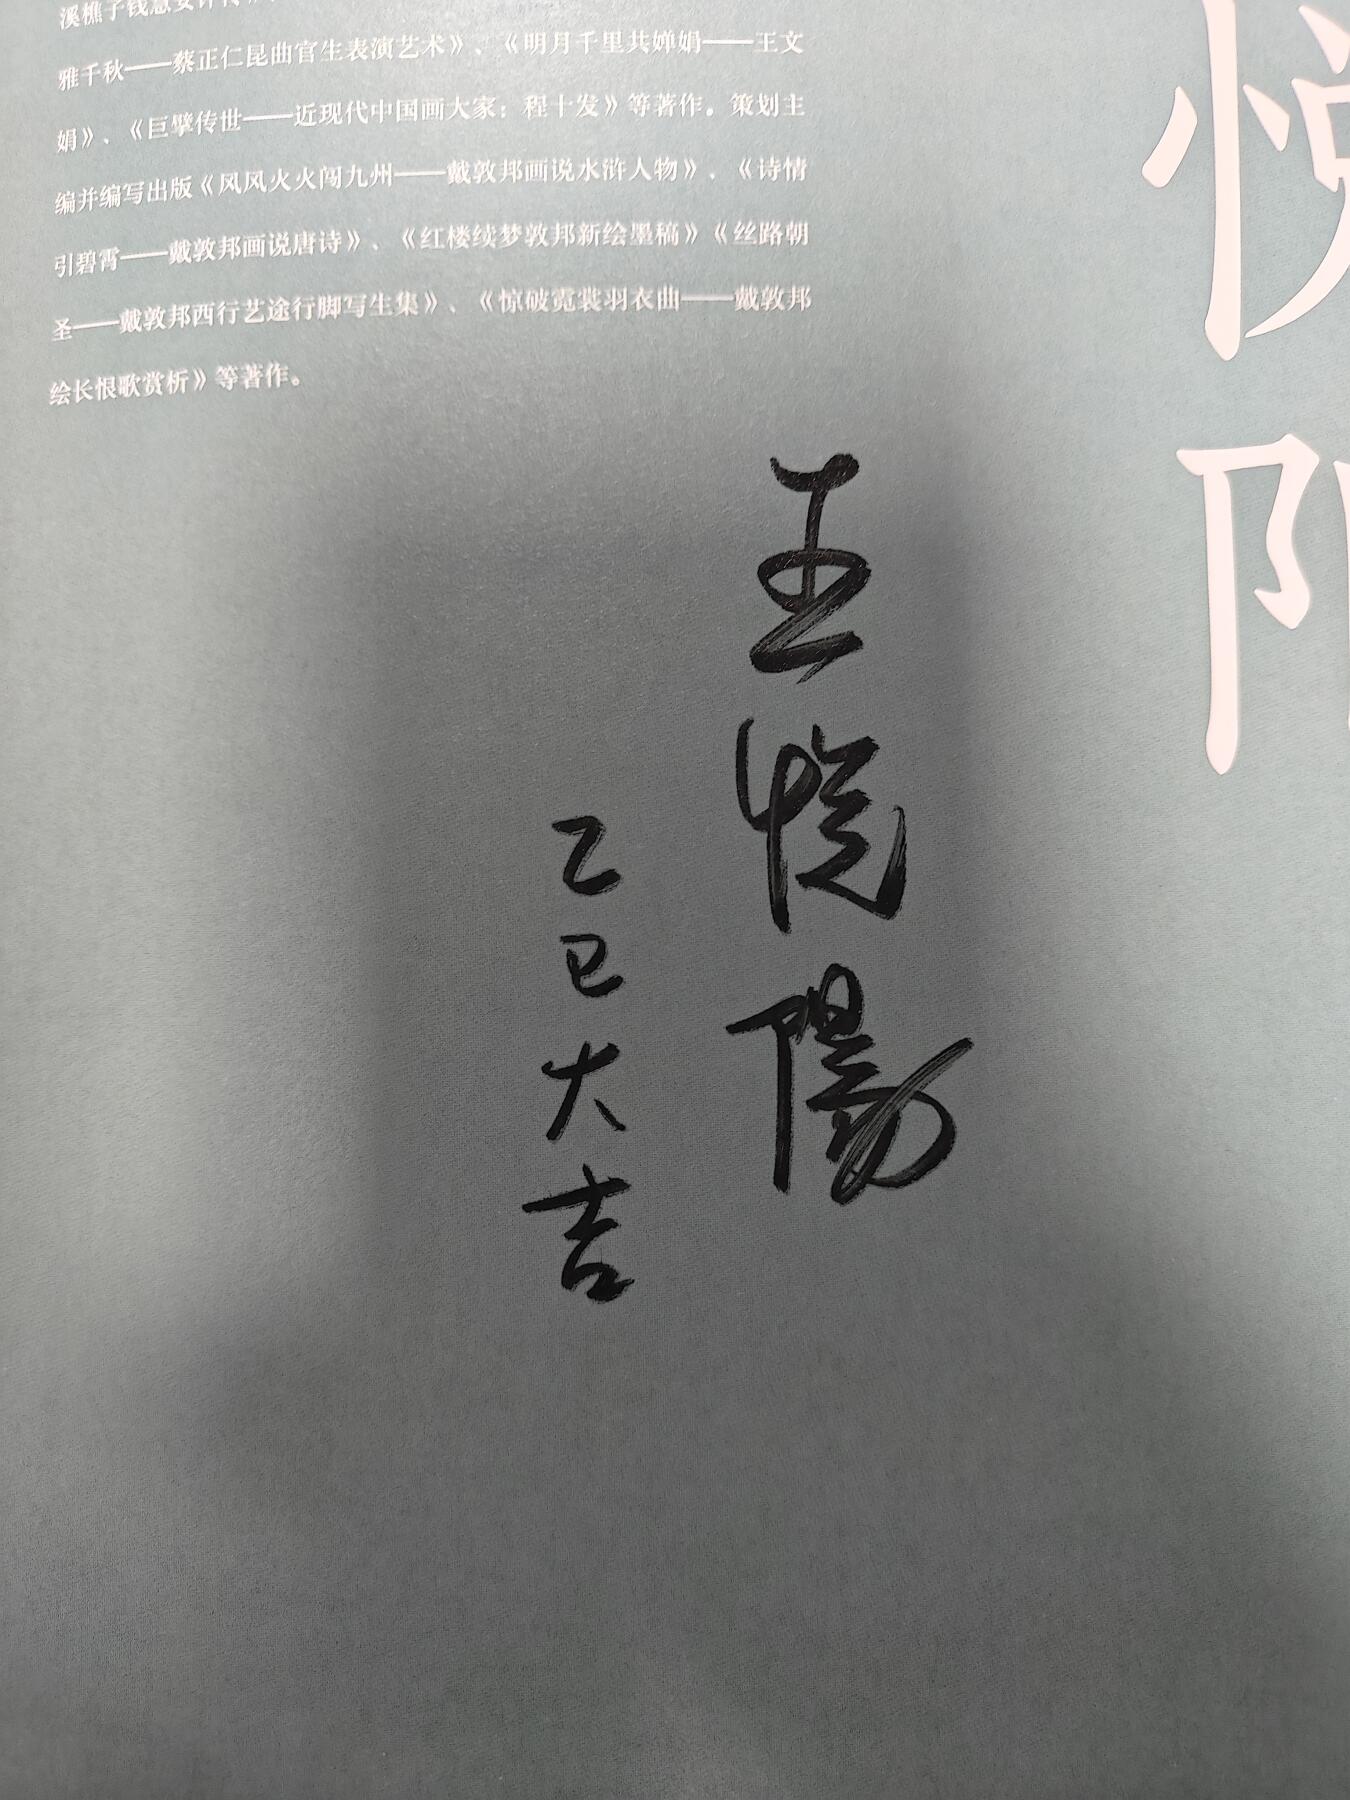 溪樵子钱慧安评传》、
雅千秋——蔡正仁昆曲官生表演艺术》、《明月千里共婵娟——王文
娟》、《巨擘传世——近现代中国画大家：程十发》等著作。策划主
编并编写出版《风风火火闯九州——戴敦邦画说水浒人物》、《诗情
引碧霄——戴敦邦画说唐诗》、《红楼续梦敦邦新绘墨稿》《丝路朝
圣——戴敦邦西行艺途行脚写生集》、《惊破霓裳羽衣曲——戴敦邦
绘长恨歌赏析》等著作。
悦
王悦陽
乙巳大吉